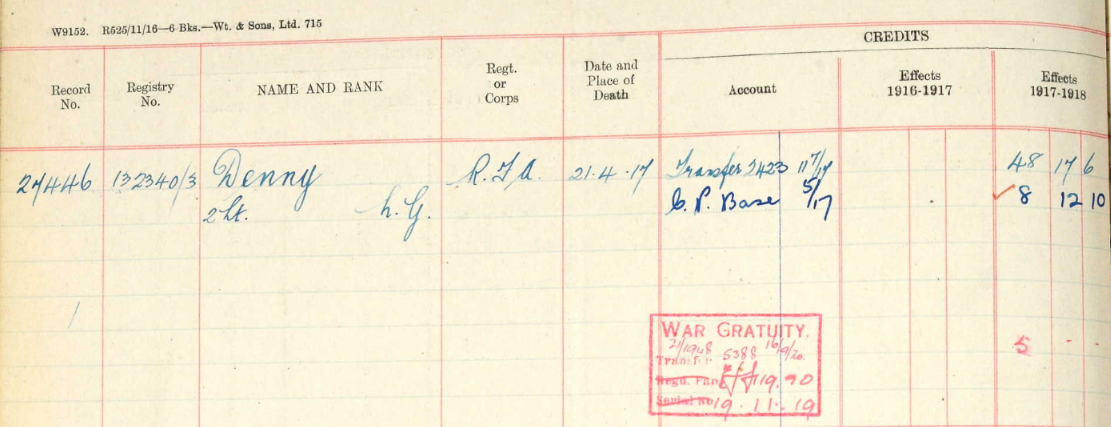 W9152. R525/11/16—6 Bks.—Wt. & Sons, Ltd. 715
CREDITS
Record No.
Registry No.
NAME AND RANK
Regt. or Corps
Date and Place of Death
Account
Effects 1916-1917
Effects 1917-1918
27446 132340/3 Denny R.F.A. 21.4.17 Transfer 2423 48 17 6
2 Lt. C. P. Base 5/17 8 12 10
WAR GRATUITY.
5388 16/9/20
Transfer
Regd. Paper
Serial No 19.11.19
5